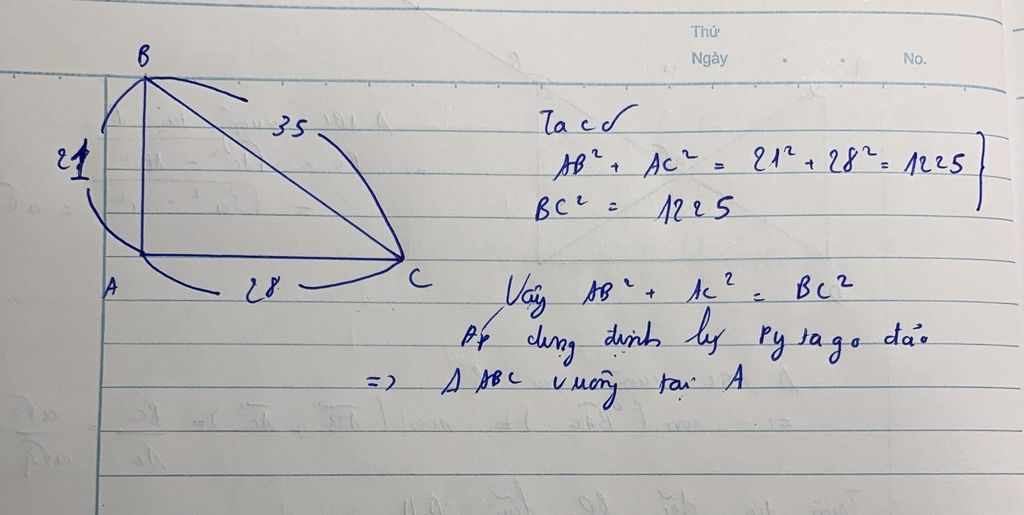 Thứ
Ngày . . No.
B
35
21
A
28
C
Ta có
AB² + AC² = 21² + 28² = 1225 }
BC² = 1225
Vậy AB² + AC² = BC²
Áp dụng định lý Pytago đảo
=> Δ ABC vuông tại A